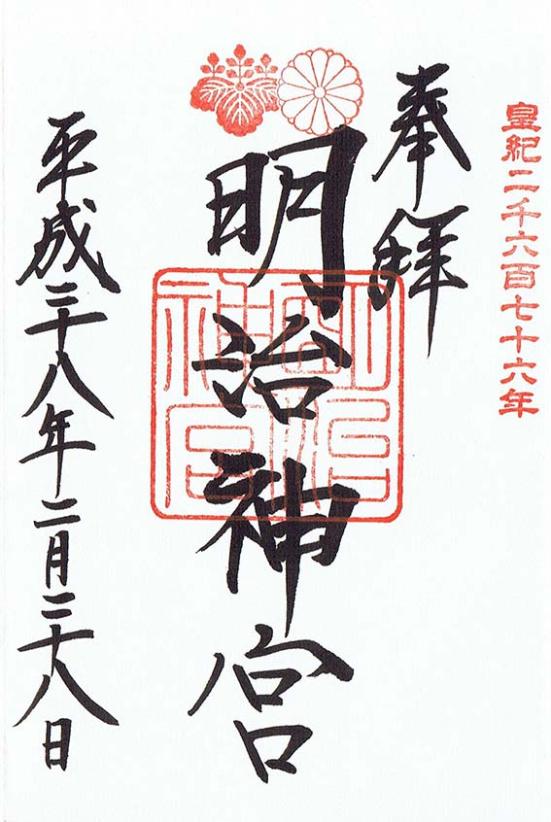 皇紀二千六百七十六年
奉拝
明治神宮
平成二十八年二月二十八日